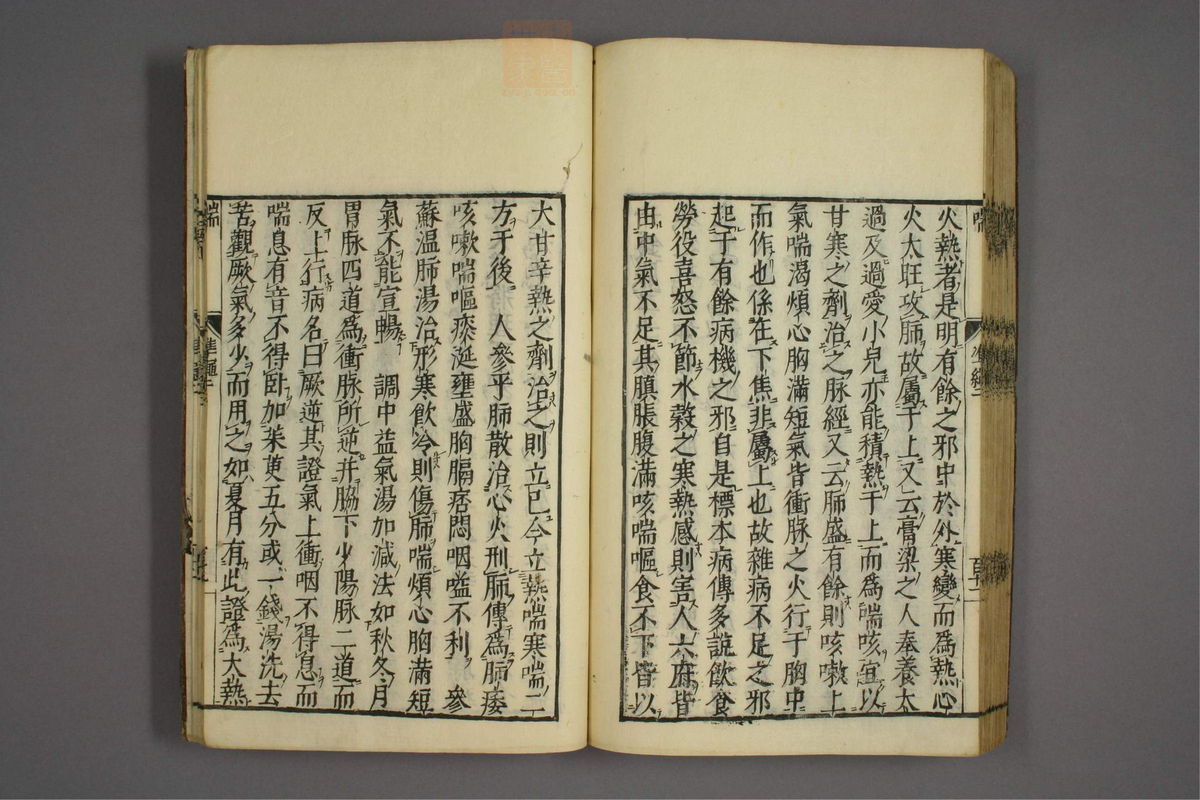 火熱者是明有餘之邪中於外寒變而爲熱心
火太旺攻肺故屬于上又云膏粱之人奉養太
過及過愛小兒亦能積熱于上而爲喘咳宜以
甘寒之劑治之脉經又云肺盛有餘則咳嗽上
氣喘渴煩心胸滿短氣皆衝脉之火行于胸中
而作也係在下焦非屬上也故雜病不足之邪
起于有餘病機之邪自是標本病傳多說飲食
勞役喜怒不節水穀之寒熱感則害人六府皆
由中氣不足其䐜脹腹滿咳喘嘔食不下皆以
大甘辛熱之劑治之則立已今立熱喘寒喘二
方于後 人參平肺散治心火刑肺傳爲肺痿
咳嗽喘嘔痰涎壅盛胸膈痞悶咽嗌不利 參
蘇溫肺湯治形寒飲冷則傷肺喘煩心胸滿短
氣不能宣暢 調中益氣湯加減法如秋冬月
胃脉四道爲衝脉所逆并脇下少陽脉二道而
反上行病名曰厥逆其證氣上衝咽不得息而
喘息有音不得卧加茱萸五分或一錢湯洗去
苦觀厥氣多少而用之如夏月有此證爲大熱
喘